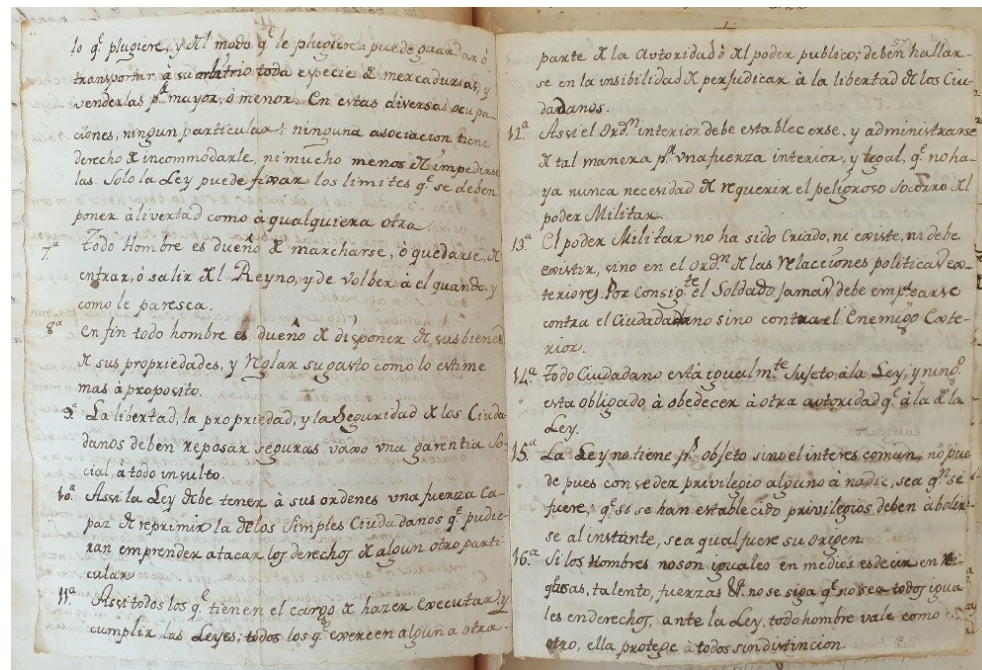 lo q.e plugiere, y del modo q.e le plugiere: puede guardar ó
transportar, á su arbitrio toda especie de mercadurias, y
venderlas p.r mayor, ó menor. En estas diversas ocupa-
ciones, ningun particular: ninguna asociacion tiene
derecho de incommodarle, ni mucho menos de impedirse
las. Solo la Ley puede fixar los limites q.e se deben
poner á livertad como á qualquiera otra.
7.a Todo Hombre es dueño de marcharse, ó quedarse, de
entrar, ó salir del Reyno, y de volber a el quando, y
como le paresca.
8.a en fin todo hombre es dueño de disponer de sus bienes
de sus propriedades, y Reglar su gasto como lo estime
mas á proposito.
9.a La libertad, la propriedad, y la Seguridad de los Ciuda-
danos deben reposar seguras vaxo vna garentia So-
cial á todo insulto.
10.a Assi la Ley debe tener á sus ordenes vna fuerza Ca-
paz de reprimir la de los Simples Ciudadanos q.e pudie-
ran emprender atacar los derechos de algun otro parti-
cular
11.a Assi todos los q.e tienen el cargo de hazer executar, y
cumplir las Leyes; todos los q.e exercen alguna otra
parte de la Autoridad ó del poder publico; deben hallar-
se en la insibilidad de perjudicar á la libertad de los Ciu-
dadanos.
12.a Assi el Ord.n interior debe establecerse, y administrarse
de tal manera p.r vna fuerza interior, y legal, q.e no ha-
ya nunca necesidad de requerir el peligroso Socorro del
poder Militar.
13.a El poder Militar no ha sido Criado, ni existe, ni debe
existir, sino en el Ord.n de las Relacciones politicas ex-
teriores. Por Consig.te el Soldado jamas debe emplearse
contra el Ciudadadano sino contra el Enemigo Exte-
rior.
14.a Todo Ciudadano está igualm.te Sujeto á la Ley, y ning.o
esta obligado á obedecer á otra autoridad q.e á la de la
Ley.
15.a La Ley no tiene p.r objeto sino el interes comun, no pue
de pues conseder privilegio alguno á nadie, sea q.n se
fuere; q.e si se han establecido privilegios deben abolir-
se al instante, sea qual fuere su origen
16.a Si los Hombres no son iguales en medios es decir en Ri-
quezas, talento, fuerzas &. no se siga q.e no sea todos igua
les en derechos, ante la Ley, todo hombre vale como
otro, ella protege á todos sin distincion.